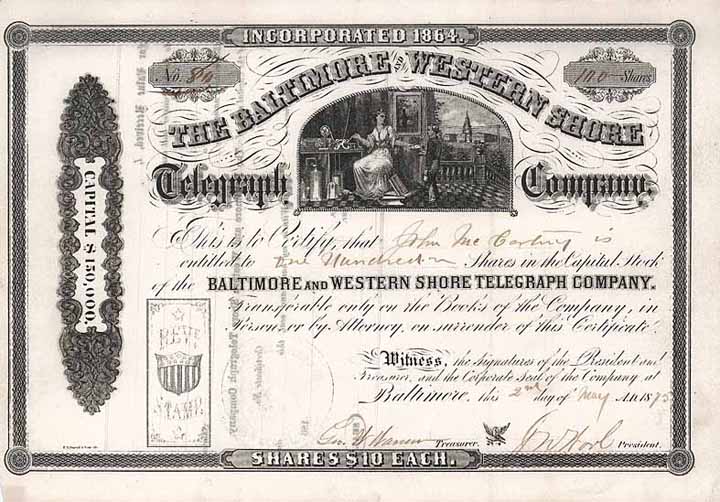 INCORPORATED 1864.
No. 80
100 Shares
THE BALTIMORE AND WESTERN SHORE
Telegraph Company.
CAPITAL $150,000.
This is to Certify, that John McCartney is
entitled to One Hundred Shares in the Capital Stock
of the BALTIMORE AND WESTERN SHORE TELEGRAPH COMPANY.
Transferable only on the Books of the Company, in
Person or by Attorney, on surrender of this Certificate.
REVE
STAMP
Witness, the signatures of the President and
Treasurer, and the Corporate Seal of the Company at
Baltimore, this 2nd day of May A.D. 1875
Treasurer.
President.
SHARES $10 EACH.